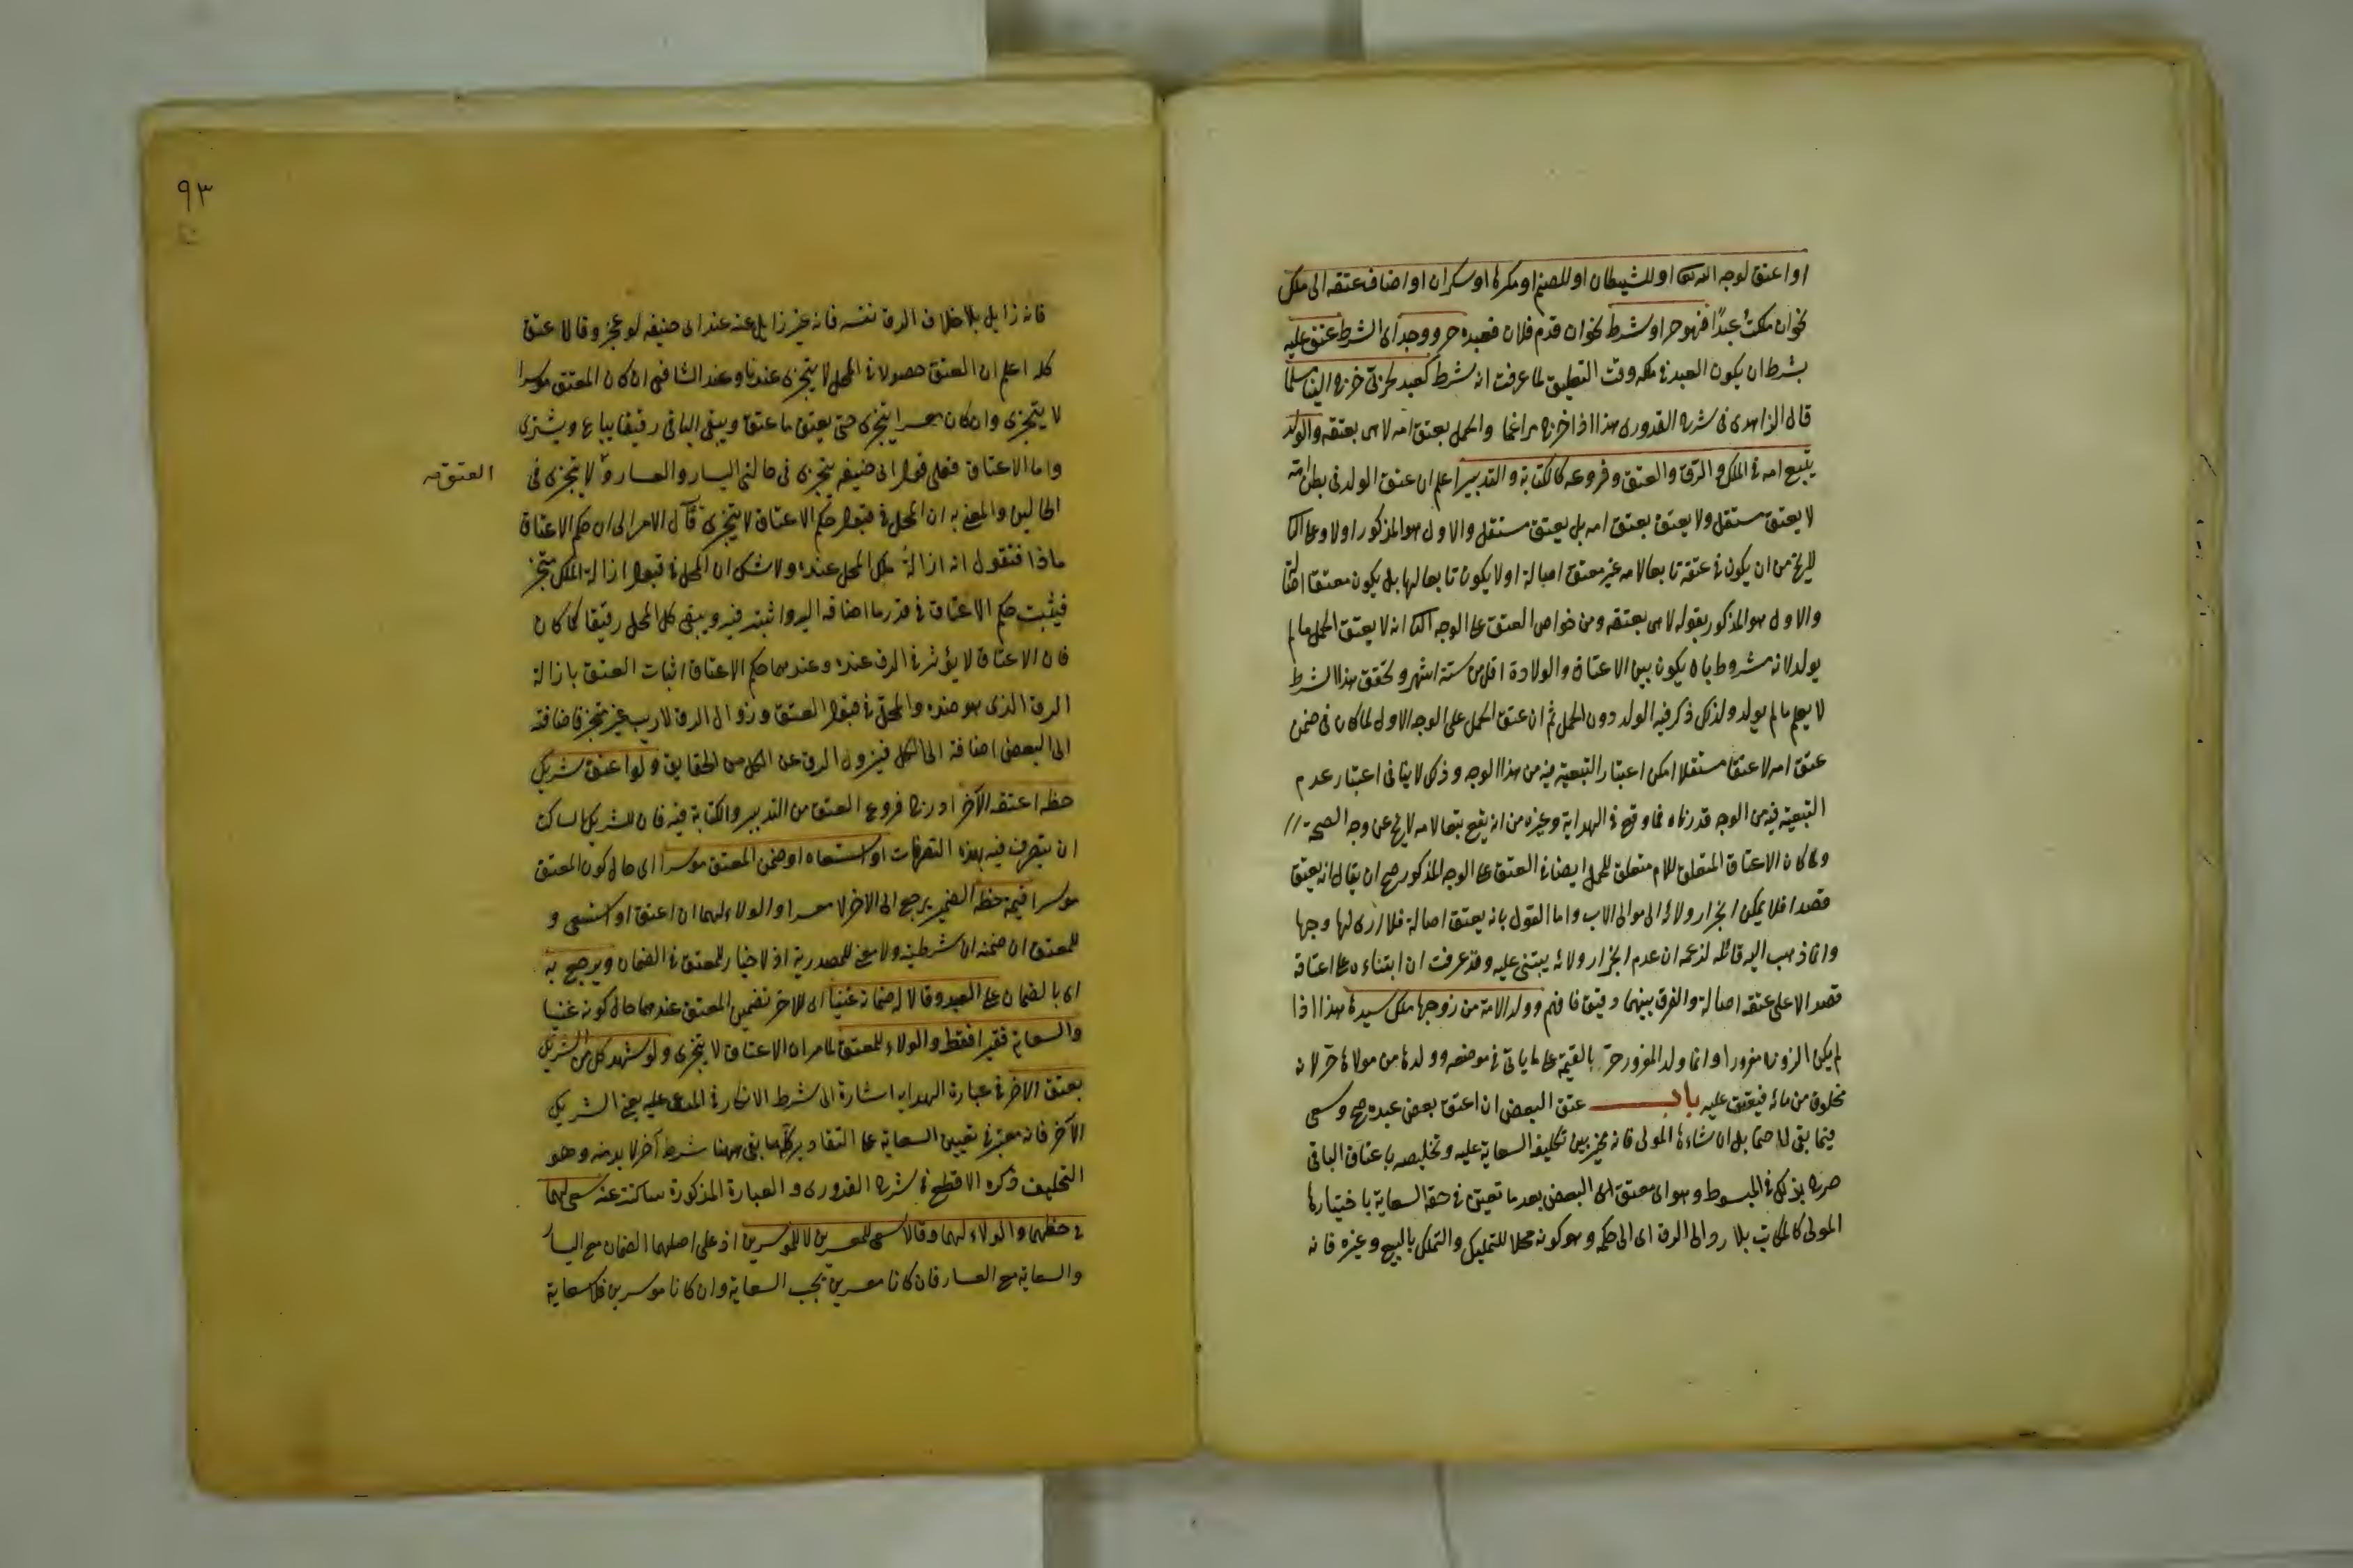 او اعتق لوجه الله تعالى او للشيطان او للصنم او مكرها او سكران او اضاف عتقه الى ملك
نحو ان ملكتُ عبدًا فهو حر او شرط نحو ان قدم فلان فعبده حر ووجد اى الشرط عتق عليه
بشرط ان يكون العبد في ملكه وقت التعليق لما عرفت انه شرط كعبد لحربى خرج الينا مسلما
قال الزاهدى فى شرح القدورى هذا اذا خرج مراغما والحمل يعتق امه لا هى بعتقه والولد
يتبع امه فى الملك والرق والعتق وفروعه كالكتابة والتدبير اعلم ان عتق الولد فى بطن امه
لا يعتق مستقل ولا يعتق بعتق امه بل يعتق مستقل والاول هو المذكور اولا وعلى
لا يخ من ان يكون فى عتقه تابعا لامه غير معتق اصالة او لا يكون تابعا لها بل يكون معتقا
والاول هو المذكور بقوله لا هى بعتقه ومن خواص العتق على الوجه انه لا يعتق الحمل ما لم
يولد لانه مشروط بان يكون بين الاعتاق والولادة اقل من ستة اشهر وتحقق هذا الشرط
لا يعلم ما لم يولد ولذلك ذكر فيه الولد دون الحمل ثم ان عتق الحمل على الوجه الاول لما كان فى ضمن
عتق امه لا عتقا مستقلا امكن اعتبار التبعية فيه من هذا الوجه وذلك لا ينافى اعتبار عدم
التبعية فيه من الوجه قدرناه فما وقع فى الهداية وغيره من انه يقع تبعا لامه لا يخ عن وجه الصحة
ولما كان الاعتاق المتعلق للام متعلق للحمل ايضا فى العتق على الوجه المذكور صح ان يقال انه يعتق
قصدا فلا يمكن انجرار ولائه الى موالى الاب واما القول بانه يعتق اصالة فلا ارى لها وجها
وانما ذهب اليه قائله لزعمه ان عدم انجرار ولائه يبتنى عليه وقد عرفت ان ابتناءه على اعتاقه
قصدا لا على عتقه اصالة والفرق بينهما دقيق فافهم وولد الامة من زوجها ملك سيدها هذا اذا
لم يكن الزوج مغرورا وانما ولد المغرور حر بالقيمة على ما ياتى فى موضعه وولدها من مولاها حر لانه
مخلوق من مائه فيعتق عليه باب عتق البعض ان اعتق بعض عبده صح وسعى
فيما بقى له حتما بل ان شاءه المولى فانه مخير بين تكليف السعاية عليه وتخليصه باعتاق الباقى
صرح بذلك فى المبسوط وهو اى معتق اى البعض بعد ما تعين فى حقه السعاية باختيارها
المولى كالمكاتب بلا رد الى الرق اى الى حكمه وهو كونه محلا للتمليك والتملك بالبيع وغيره فانه
٩٣
فانه زايل بلا خلاف الرق نفسه فانه غير زايل عنه عند ابى حنيفه لو عجز وقالا عتق
كله اعلم ان العتق حصولا فى المحل لا يتجزى عندنا وعند الشافعى ان كان المعتق موسرا
لا يتجزى وان كان معسرا يتجزى حتى يعتق ما عتق ويبقى الباقى رقيقا يباع ويشترى
واما الاعتاق فعلى قول ابى حنيفه يتجزى فى حالتى اليسار والعسار و لا يتجزى فى
العتق صـ
الحالين والمعنى به ان المحل فى قبول حكم الاعتاق لا يتجزى قآل الامر الى ان حكم الاعتاق
ماذا فنقول انه ازالة ملك المحل عنده ولا شك ان المحل فى قبول ازالة الملك متجز
فيثبت حكم الاعتاق فى قدر ما اضافه اليه واثبته فيه ويبقى كل المحل رقيقا كما كان
فان الاعتاق لا يؤثر فى الرق عنده وعندهما حكم الاعتاق اثبات العتق بازالة
الرق الذى هو ضده والمحل فى قبول العتق وزوال الرق لا ريب غير متجز فاضافته
الى البعض اضافة الى الكل فيزول الرق عن الكل من الحقايق ولو اعتق شريك
حظه اعتقه الآخر ادرج فروع العتق من التدبير والكتابة فيه فان للشريك الساكت
ان يتصرف فيه بهذه التصرفات او استسعاه او ضمن المعتق موسرا اى حال كون المعتق
موسرا قيمة حظه الضمير يرجع الى الاخر لا معسرا والولاء لهما ان اعتق او استسعى و
للمعتق ان ضمنه ان شرطية ولا معنى للمصدرية اذ لا خيار للمعتق فى الضمان ويرجع به
اى بالضمان على العبد وقالا له ضمانه غنيا اى للاخر تضمين المعتق عندهما حال كونه غنيا
والسعاية فقيرا فقط والولاء للمعتق لما مر ان الاعتاق لا يتجزى ولو شهد كل من الشريكين
بعتق الاخر فى عبارة الهداية اشارة الى شرط الانكار فى المدعى عليه يعنى الشريك
الآخر فانه معتبر فى تعيين السعاية على التقادير كلها بقى ههنا شرط آخر لا بد منه وهو
التحليف ذكره الاقطع فى شرح القدورى والعبارة المذكورة ساكتة عنه سعى لهما
فى حظهما والولاء لهما وقالا سعى للمعسرين لا للموسرين اذ على اصلهما الضمان مع اليسار
والسعاية مع العسار فان كانا معسرين تجب السعاية وان كانا موسرين فلا سعاية